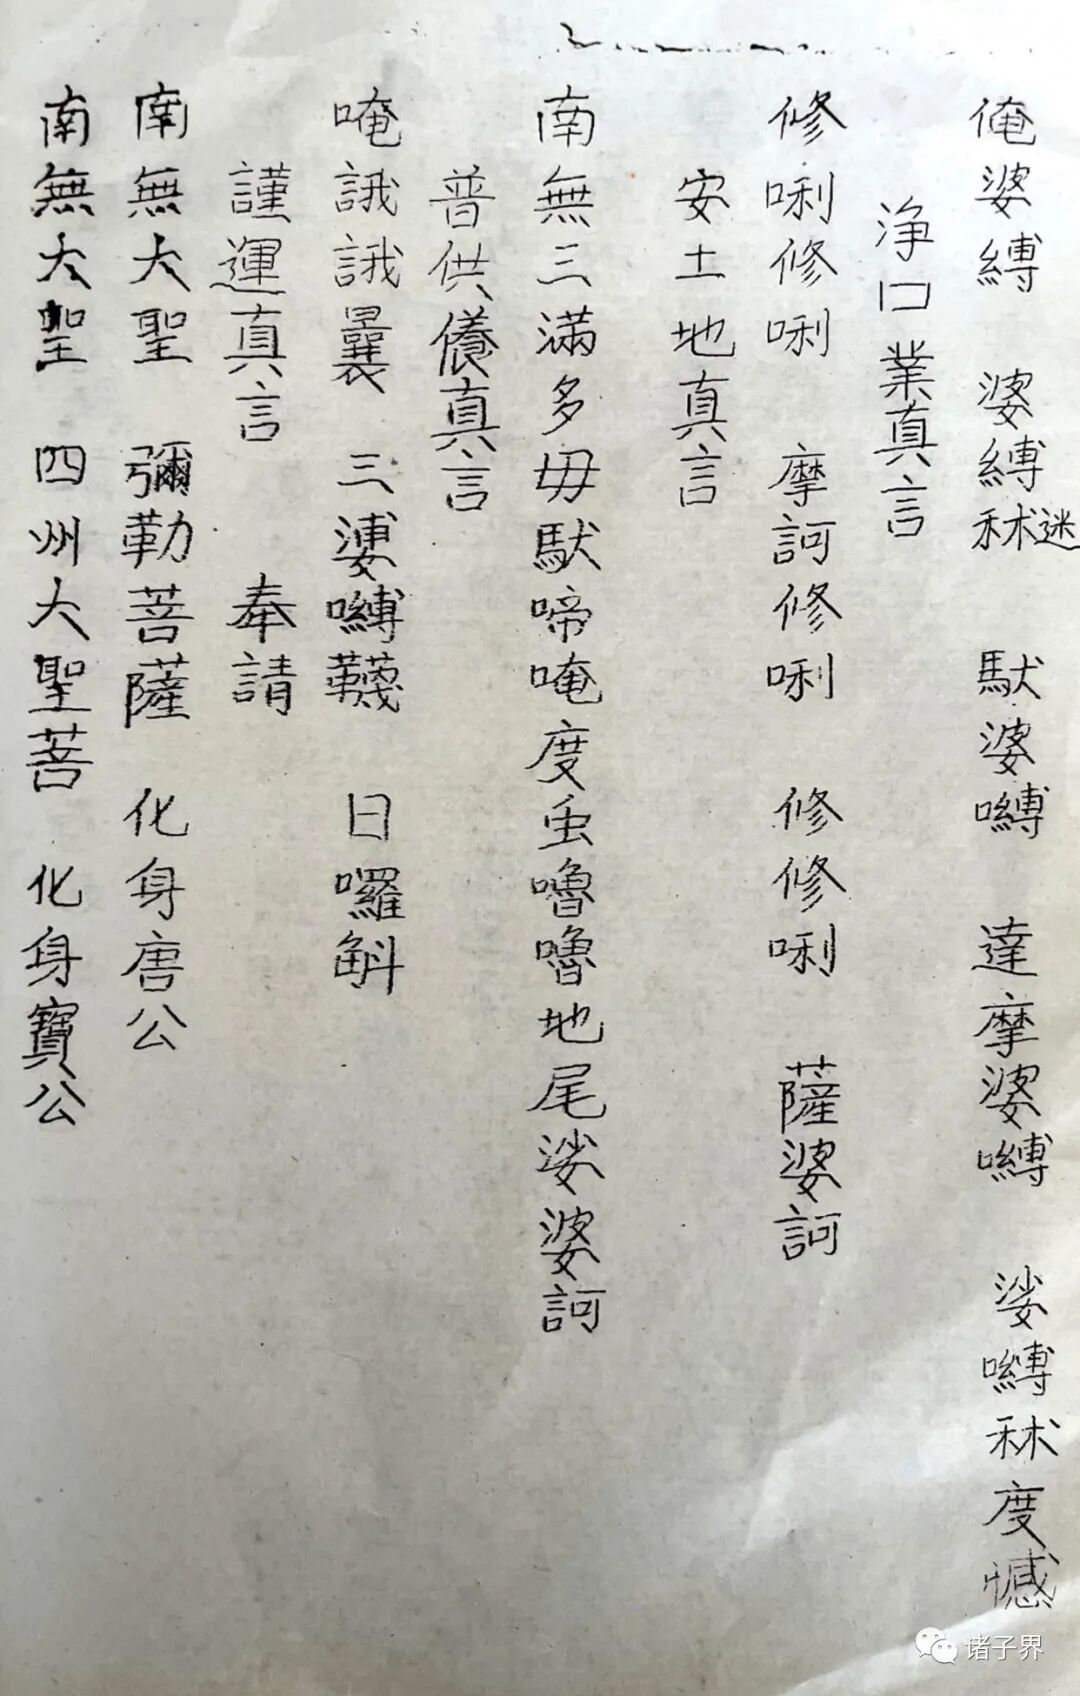 俺婆縛 婆縛秫迷 馱婆嚩 達摩婆嚩 娑嚩秫度憾
浄口業真言
修唎修唎 摩訶修唎 修修唎 薩婆訶
安土地真言
南無三滿多毋馱啼唵度䖝嚕嚕地尾娑婆訶
普供養真言
唵誐誐曩 三婆嚩韈 日囉斛
謹運真言 奉請
南無大聖 彌勒菩薩 化身唐公
南無大聖 四州大聖菩 化身寶公
诸子界